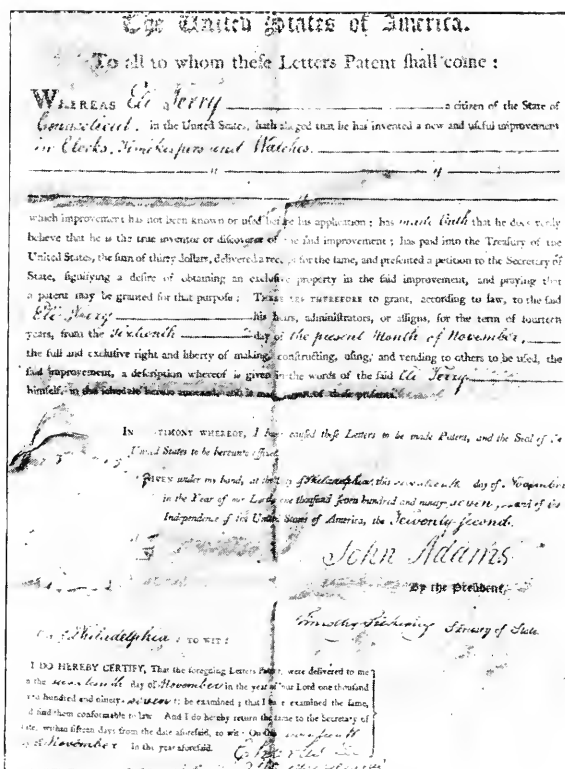 The United States of America.
To all to whom theſe Letters Patent ſhall come :
WHEREAS Eli Terry a citizen of the State of
Connecticut, in the United States, hath alleged that he has invented a new and uſeful improvement
in Clocks, Timekeepers and Watches.
which improvement has not been known or uſed before his application ; has made Oath that he does verily
believe that he is the true inventor or diſcoverer of the ſaid improvement ; has paid into the Treaſury of the
United States, the ſum of thirty dollars, delivered a receipt for the ſame, and preſented a petition to the Secretary of
State, ſignifying a deſire of obtaining an excluſive property in the ſaid improvement, and praying that
a patent may be granted for that purpoſe : THESE ARE THEREFORE to grant, according to law, to the ſaid
Eli Terry his heirs, adminiſtrators, or aſſigns, for the term of fourteen
years, from the Sixteenth day of the present Month of November,
the full and excluſive right and liberty of making, conſtructing, uſing, and vending to others to be uſed, the
ſaid improvement, a deſcription whereof is given in the words of the ſaid Eli Terry
himſelf, in the ſchedule hereto annexed, and is made part of theſe preſents.
IN TESTIMONY WHEREOF, I have cauſed theſe Letters to be made Patent, and the Seal of the
United States to be hereunto affixed.
GIVEN under my hand, at the City of Philadelphia, this seventeenth day of November
in the Year of our Lord, one thouſand ſeven hundred and ninety-seven, and of the
Independence of the United States of America, the Twenty-second.
John Adams
By the Preſident,
Timothy Pickering Secretary of State
City of Philadelphia, TO WIT :
I DO HEREBY CERTIFY, That the foregoing Letters Patent, were delivered to me
on the seventeenth day of November in the year of our Lord one thouſand
ſeven hundred and ninety-seven ; to be examined ; that I have examined the ſame,
and find them conformable to law. And I do hereby return the ſame to the Secretary of
State, within fifteen days from the date aforeſaid, to wit : On this
day of November In the year aforeſaid.
Charles Lee